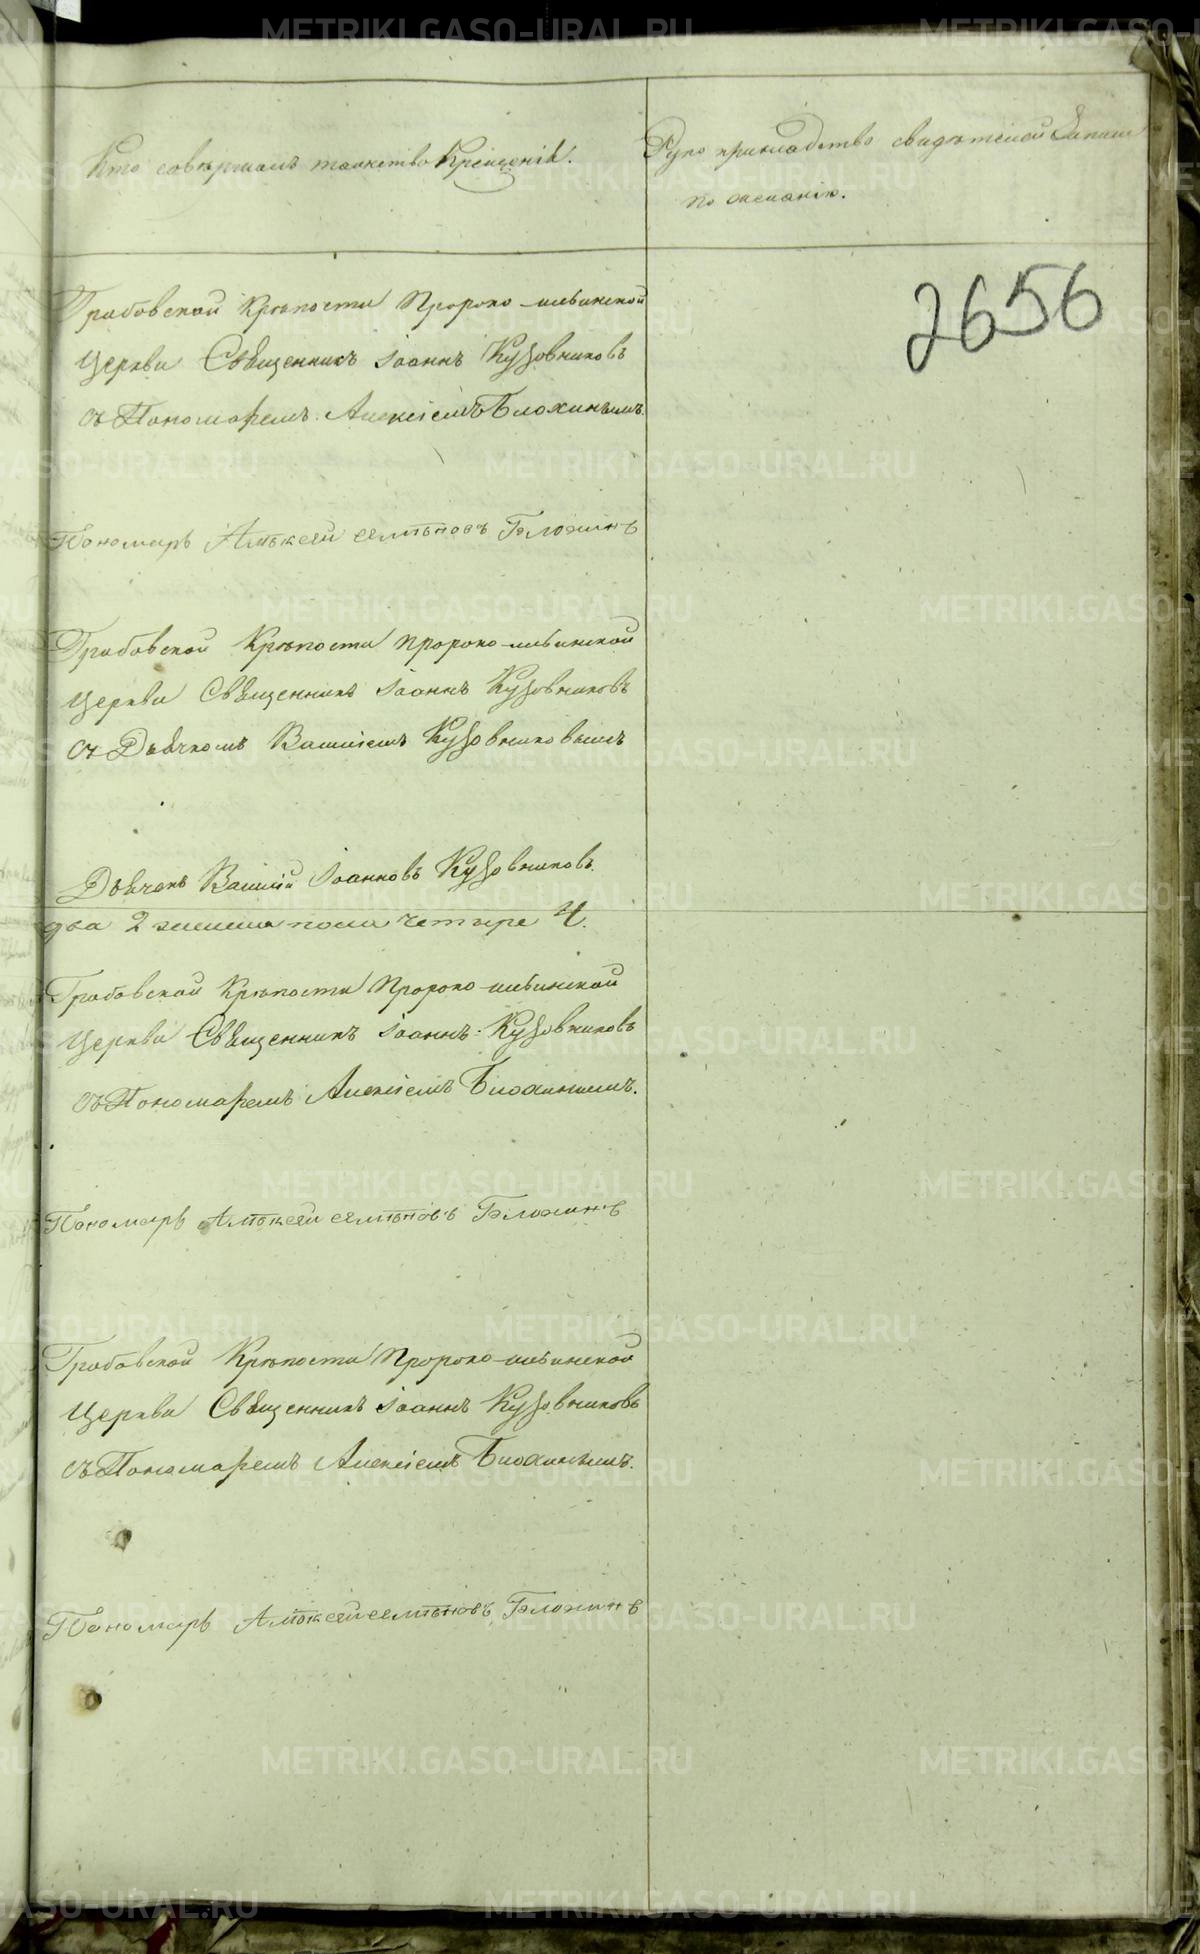 Кто совершалъ таинство Крещенія.
Рукоприкладство свидѣтелей записи
по желанію.
2656
Грабовской Крѣпости Пророко-ильинской
Церкви Священникъ Іоаннъ Кузовниковъ
съ Пономаремъ Алексіемъ Блохинымъ.
Пономарь Алѣксей семѣновъ Блохинъ
Грабовской Крѣпости Пророко-ильинской
Церкви Священникъ Іоаннъ Кузовниковъ
съ Дьячкомъ Василіемъ Кузовниковымъ
Дьячекъ Василій Іоанновъ Кузовниковъ.
два 2 женска пола четыре 4.
Грабовской Крѣпости Пророко-ильинской
Церкви Священникъ Іоаннъ Кузовниковъ
съ Пономаремъ Алексіемъ Блохинымъ.
Пономарь Алѣксей семѣновъ Блохинъ
Грабовской Крѣпости Пророко-ильинской
Церкви Священникъ Іоаннъ Кузовниковъ
съ Пономаремъ Алексіемъ Блохинымъ.
Пономарь Алѣксей семѣновъ Блохинъ
METRIKI.GASO-URAL.RU